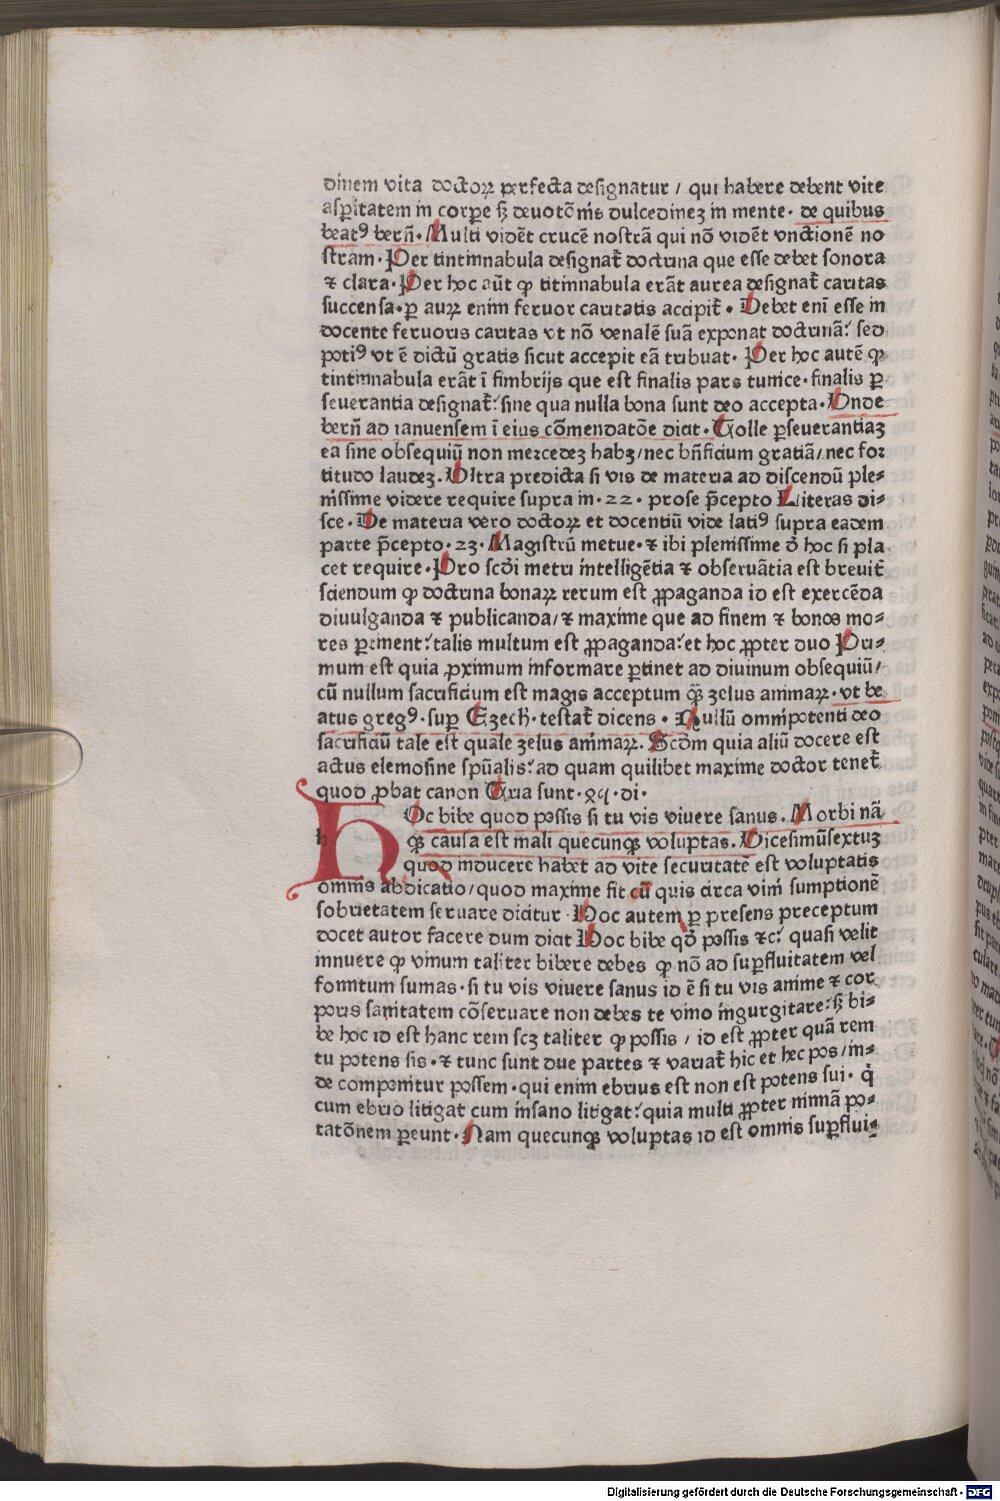 dinem vita doctoꝝ perfecta designatur / qui habere debent vite
asp̱itatem in corpe sꝫ deuotōnis dulcedineꝫ in mente · de quibus
beatꝰ berñ · Multi vidēt crucē nostrā qui nō vidēt vnctionē no
stram · Per tintinnabula designat᷑ doctrina que esse debet sonora
⁊ clara · Per hoc aūt ꝙ titinnabula erāt aurea designat᷑ caritas
succensa · ꝑ auꝝ enim feruor caritatis accipit᷑ · Debet eni esse in
docente feruoris caritas vt nō venalē suā exponat doctrinā: sed
potiꝰ vt ē dictū gratis sicut accepit eā tribuat · Per hoc autē ꝙ
tintinnabula erāt ī fimbrijs que est finalis pars tunice · finalis ꝑ
seuerantia designat᷑: sine qua nulla bona sunt deo accepta · Vnde
berñ ad ianuensem ī eius cōmendatōe dicit · Tolle ꝑseuerantiaꝫ
ea sine obsequiū non mercedeꝫ habꝫ / nec bn̄ficium gratiā / nec for
titudo laudeꝫ · Vltra predicta si vis de materia ad discendū ple⸗
nissime videre require supra in · 22 · prose p̄cepto Literas di⸗
sce · De materia vero doctoꝝ et docentiū vide latiꝰ supra eadem
parte p̄cepto · 23 · Magistrū metue · ⁊ ibi plenissime d̄ hoc si pla
cet require · Pro scd̄i metri intelligētia ⁊ obseruātia est breuit᷑
sciendum ꝙ doctrina bonaꝝ rerum est ꝓpaganda id est exercēda
diuulganda ⁊ publicanda / ⁊ maxime que ad finem ⁊ bonos mo⸗
res ꝑtinent: talis multum est ꝓpaganda: et hoc ꝓpter duo Pri⸗
mum est quia ꝓximum informare ꝑtinet ad diuinum obsequiū /
cū nullum sacrificium est magis acceptum ꝙ̄ zelus animaꝝ · vt be
atus gregꝰ · suꝑ Ezech̄ · testat᷑ dicens · Nullū omnipotenti deo
sacrificiū tale est quale zelus animaꝝ · Scd̄m quia aliū docere est
actus elemosine spūalis: ad quam quilibet maxime doctor tenet᷑
quod ꝓbat canon Tria sunt · di ·
h
HOc bibe quod possis si tu vis viuere sanus · Morbi nā
ꝙ̄ causa est mali quecunqꝫ voluptas · Vicesimūsextuꝫ
quod inducere habet ad vite securitatē est voluptatis
omnis abdicatio / quod maxime fit cū quis circa vini sumptionē
sobrietatem seruare dicitur · Hoc autem ꝑ presens preceptum
docet autor facere dum dicit Hoc bibe qd̄ possis ⁊c: quasi velit
innuere ꝙ vinum taliter bibere debes ꝙ nō ad suꝑfluitatem vel
fomitum sumas · si tu vis viuere sanus id ē si tu vis anime ⁊ cor
poris sanitatem cōseruare non debes te vino ingurgitare: sꝫ bi⸗
be hoc id est hanc rem scꝫ taliter ꝙ possis / id est ꝓpter quā rem
tu potens sis · ⁊ tunc sunt due partes ⁊ variat᷑ hic et hec pos / in⸗
de componitur possem · qui enim ebrius est non est potens sui · q̇
cum ebrio litigat cum insano litigat: quia multi ꝓpter nimiā po⸗
tatōnem ꝑeunt · Nam quecunqꝫ voluptas id est omnis suꝑflui⸗
Digitalisierung gefördert durch die Deutsche Forschungsgemeinschaft - DFG